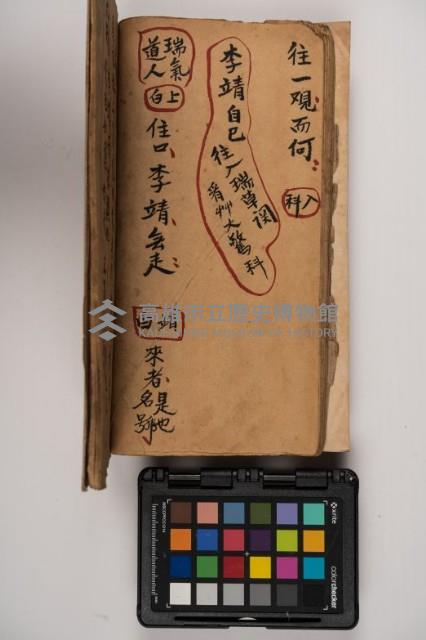 往一观而何
入科
李靖自己往入瑞草洞
看艸大驚科
瑞氣道人
上白
住口李靖
走
靖白
來者是他
名號
高雄市立歷史博物館
KAOHSIUNG MUSEUM OF HISTORY
x-rite
colorchecker